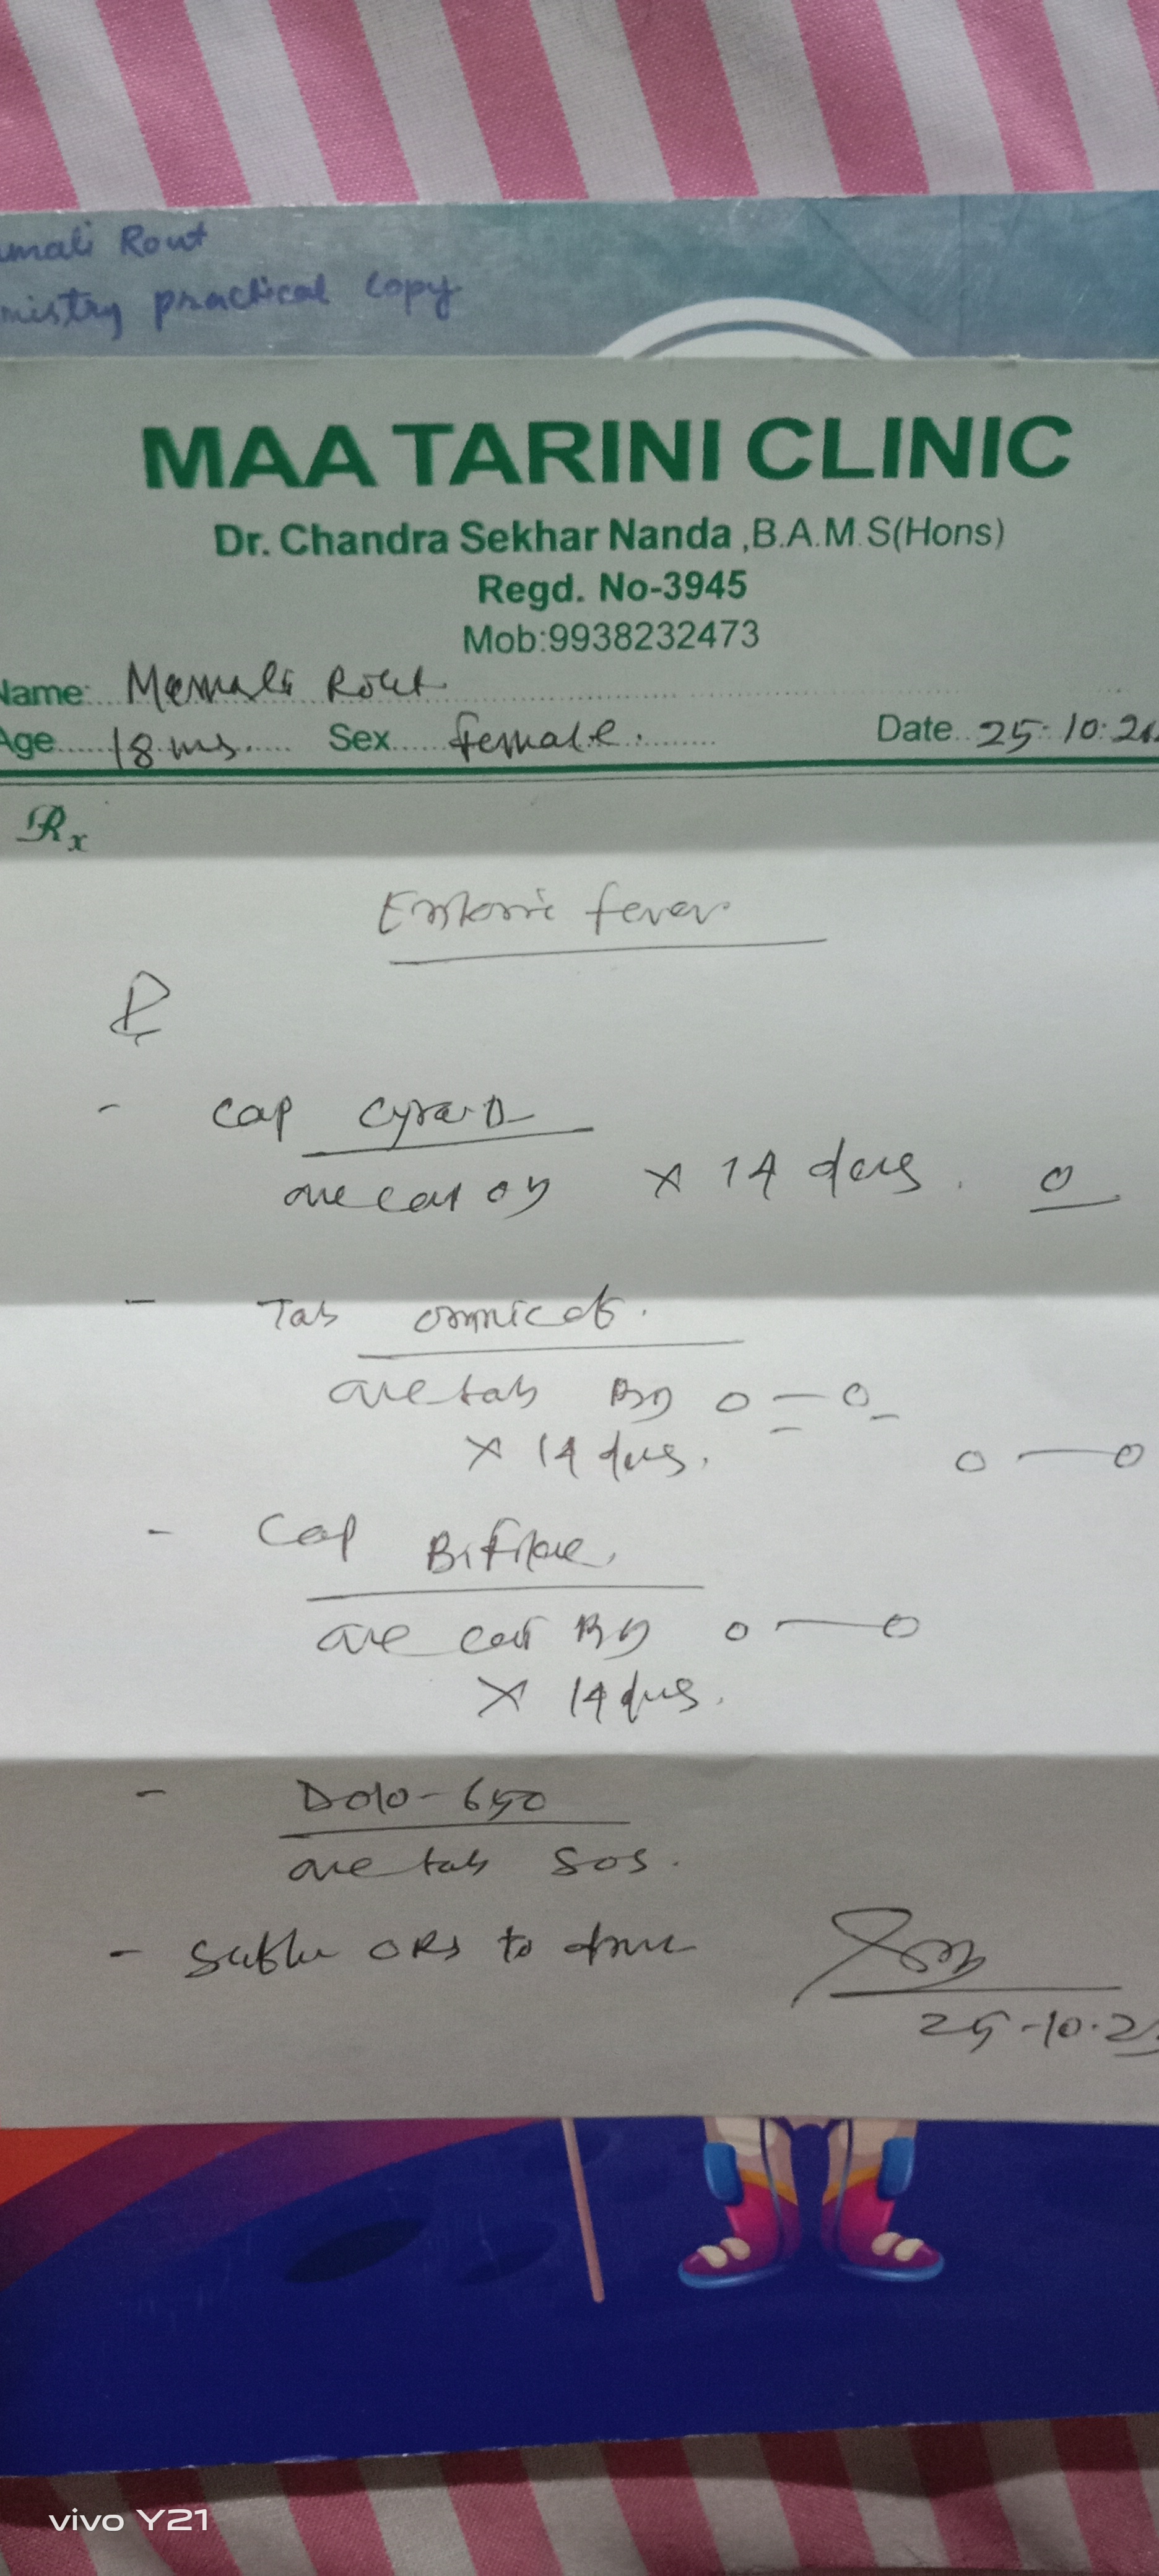 mali Rout
mistry practical copy
MAA TARINI CLINIC
Dr. Chandra Sekhar Nanda ,B.A.M.S(Hons)
Regd. No-3945
Mob:9938232473
Name: Mamali Rout
Age 18 Sex female. Date 25.10.2
Rx
fever
- cap Cyra-D
one cap x 14 days.
- Tab
one tab BD o-o
x 14 days. o-o
- Cap
one cap BD o-o
x 14 days.
- Dolo-650
one tab SOS.
- ORS to
25-10-2
vivo Y21